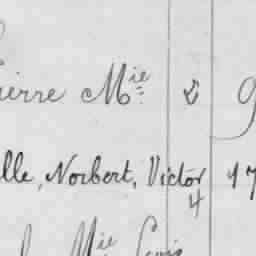 ierre Mie
lle, Norbert, Victor 17
4
Mie Louis